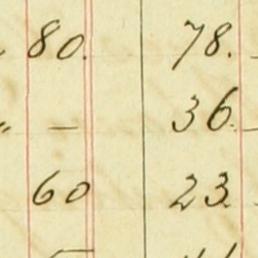 80. 78.
" — 36.
60 23.